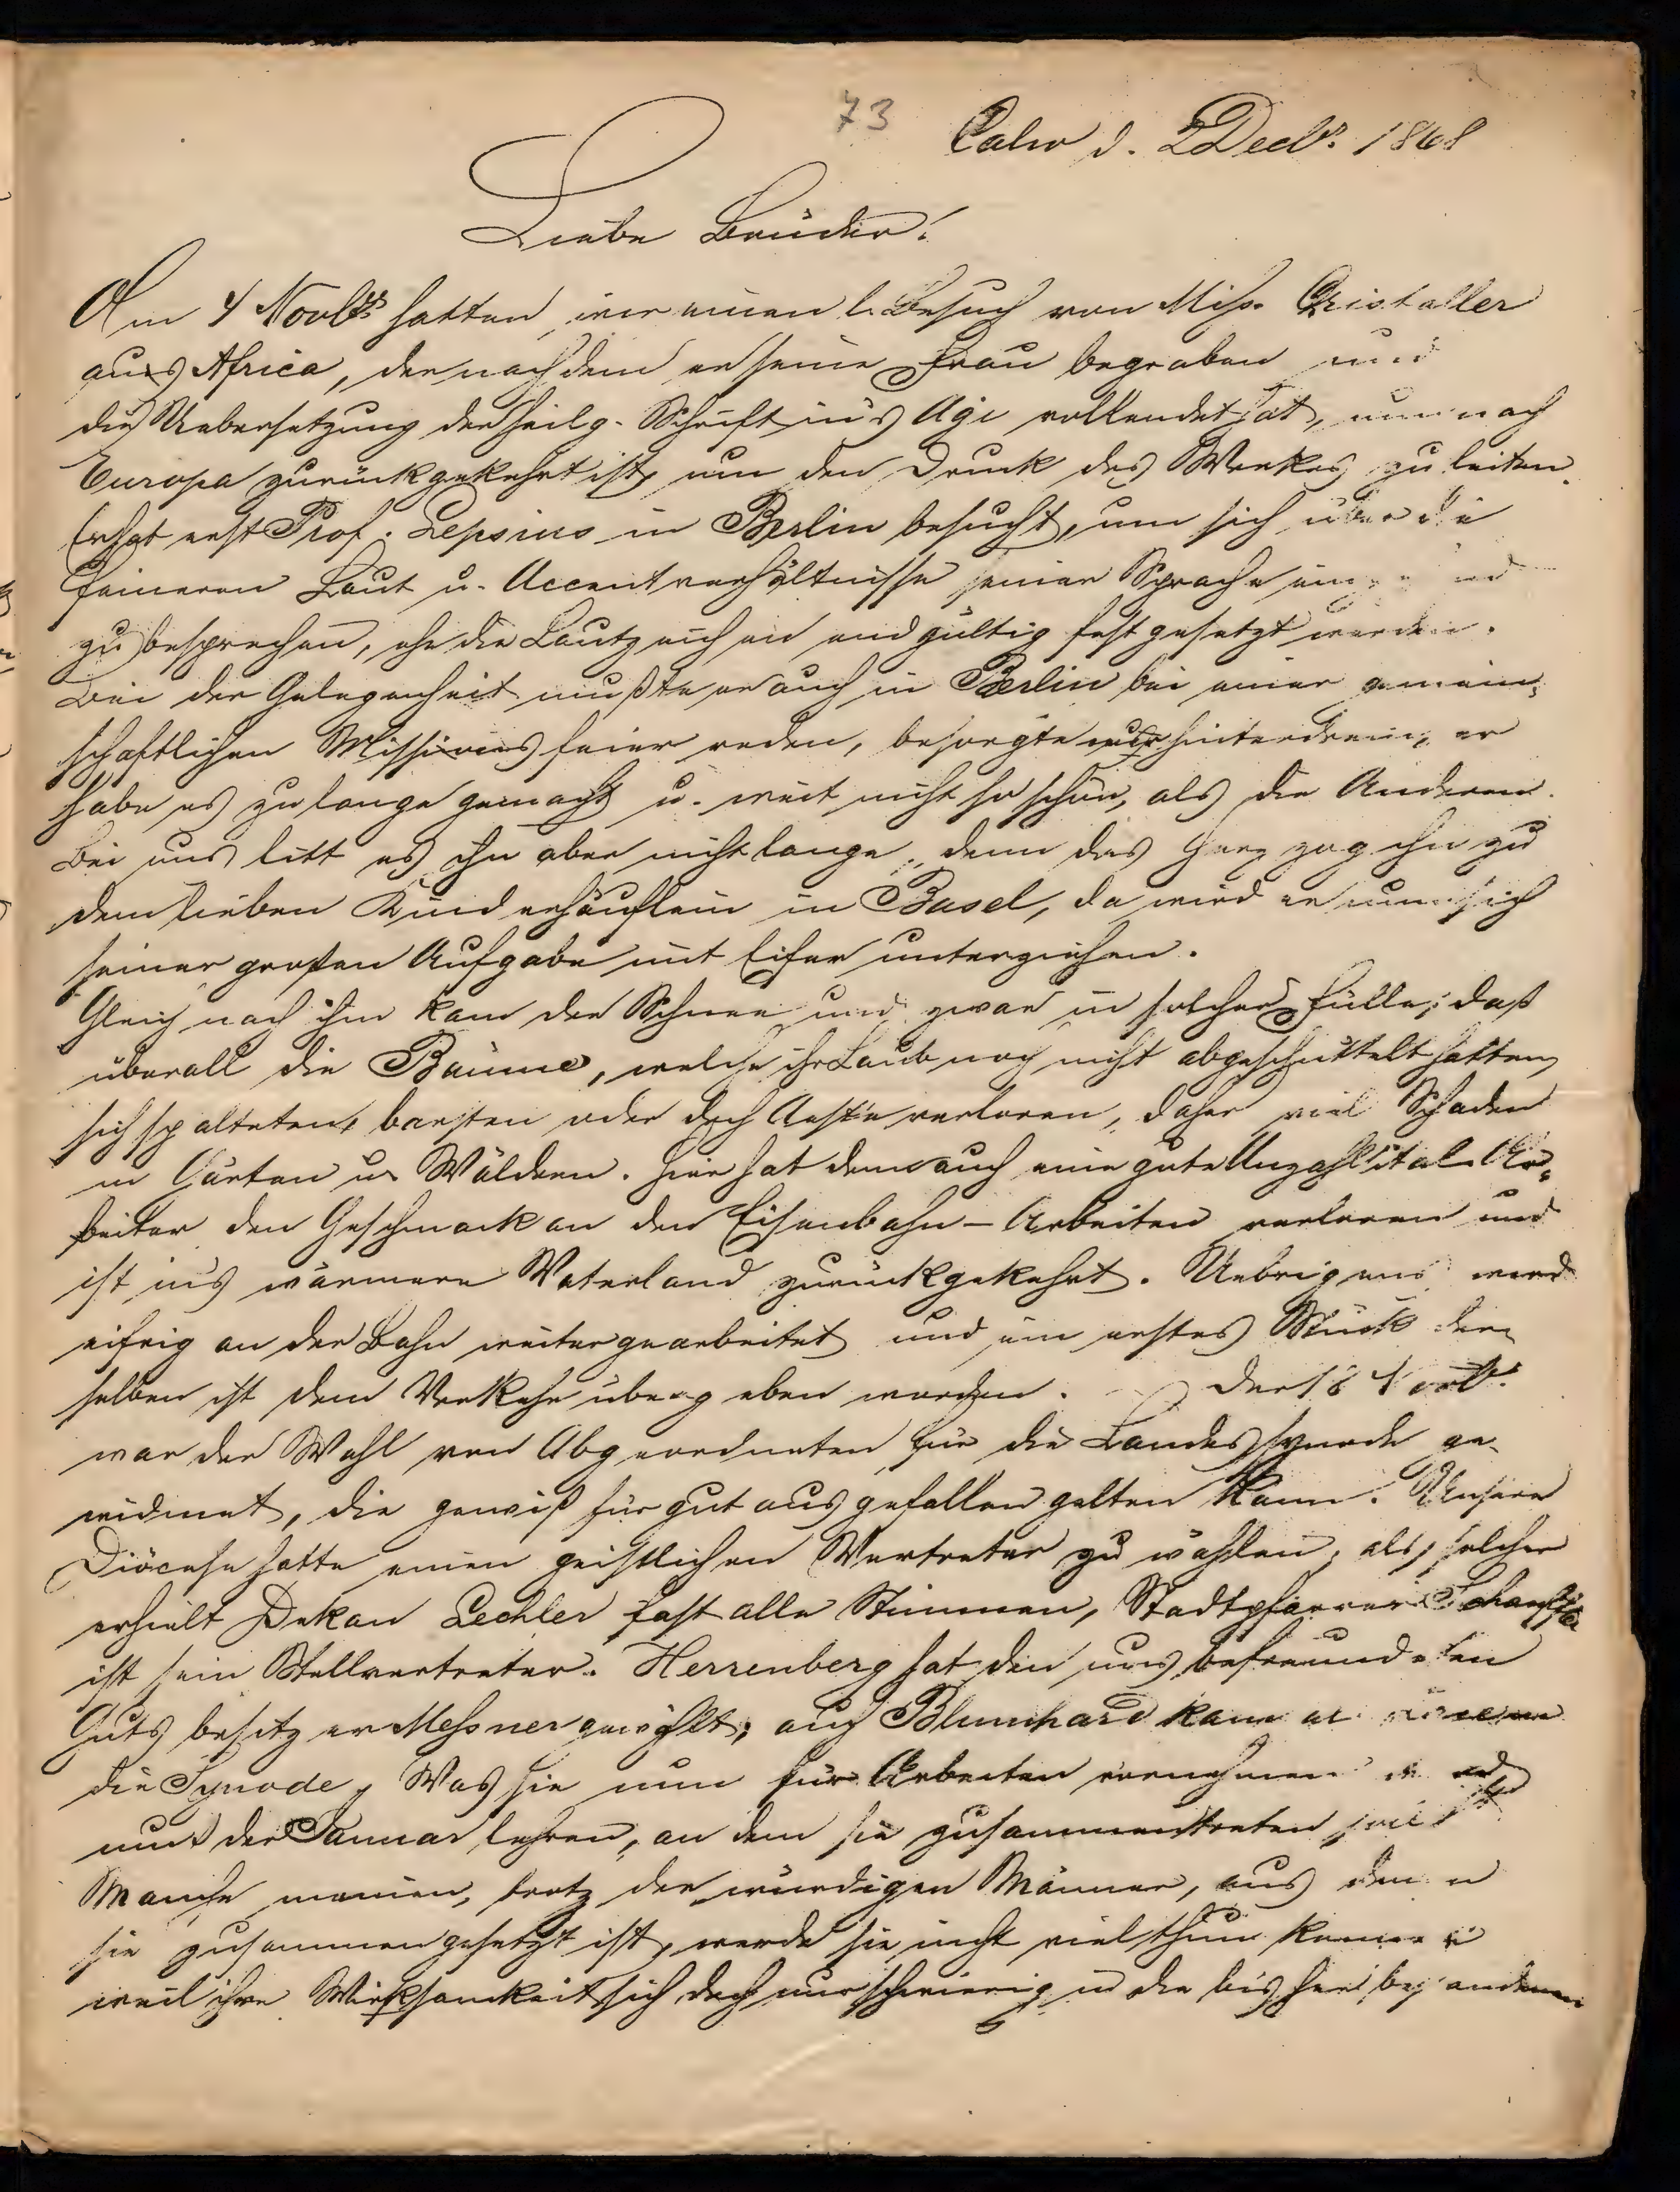 73
Calw d. 2 Decbr. 1868
Liebe Brüder!
Am 4 Novbr hatten wir einen l. Besuch von Miss. Christaller
aus Africa, der nachdem er seine Frau begraben und
die Uebersetzung der heilg. Schrift in's Agi vollendet hat, nun nach
Europa zurückgekehrt ist, um den Druck des Werkes zu leiten.
Er hat erst Prof. Lepsius in Berlin besucht, um sich über die
feineren Laut u. Accentverhältnisse seiner Sprache
zu besprechen, ehe die Lautzeichen endgültig festgesetzt werden.
Bei der Gelegenheit mußte er auch in Berlin bei einer gemein-
schaftlichen Missionsfeier reden, besorgte nur hintendrein, er
habe es zu lange gemacht u. weit nicht so schön, als die Anderen.
Bei uns litt es ihn aber nicht lange, denn das Herz zog ihn zu
dem lieben Kinderhäuflein in Basel, da wird er nun sich
seiner großen Aufgabe mit Eifer unterziehen.
Gleich nach ihm kam der Schnee und zwar in solcher Fülle, daß
überall die Bäume, welche ihr Laub noch nicht abgeschüttelt hatten,
sich spalteten, barsten oder doch Aeste verloren, daher viel Schaden
in Gärten u. Wäldern. Hier hat denn auch eine gute Anzahl ital. Ar-
beiter den Geschmack an den Eisenbahn-Arbeiten verloren und
ist in's wärmere Vaterland zurückgekehrt. Uebrigens wird
eifrig an der Bahn weitergearbeitet und ein erstes Stück der-
selben ist dem Verkehr übergeben worden. Der 18 Novbr.
war der Wahl von Abgeordneten für die Landessynode ge-
widmet, die gewiß für gut ausgefallen gelten kann. Unsere
Diöcese hatte einen geistlichen Vertreter zu wählen, als solcher
erhielt Dekan Lechler fast alle Stimmen, Stadtpfarrer
ist sein Stellvertreter. Herrenberg hat den uns befreundeten
Gutsbesitzer Messner gewählt; auch Blumhard kam
die Synode, Was sie nun für Arbeiten vornehmen
muß der Januar lehren, an dem sie zusammentreten soll.
Manche meinen, trotz der würdigen Männer, aus denen
sie zusammengesetzt ist, werde sie nicht viel thun können
weil ihre Wirksamkeit sich doch nur schwierig in die bisher